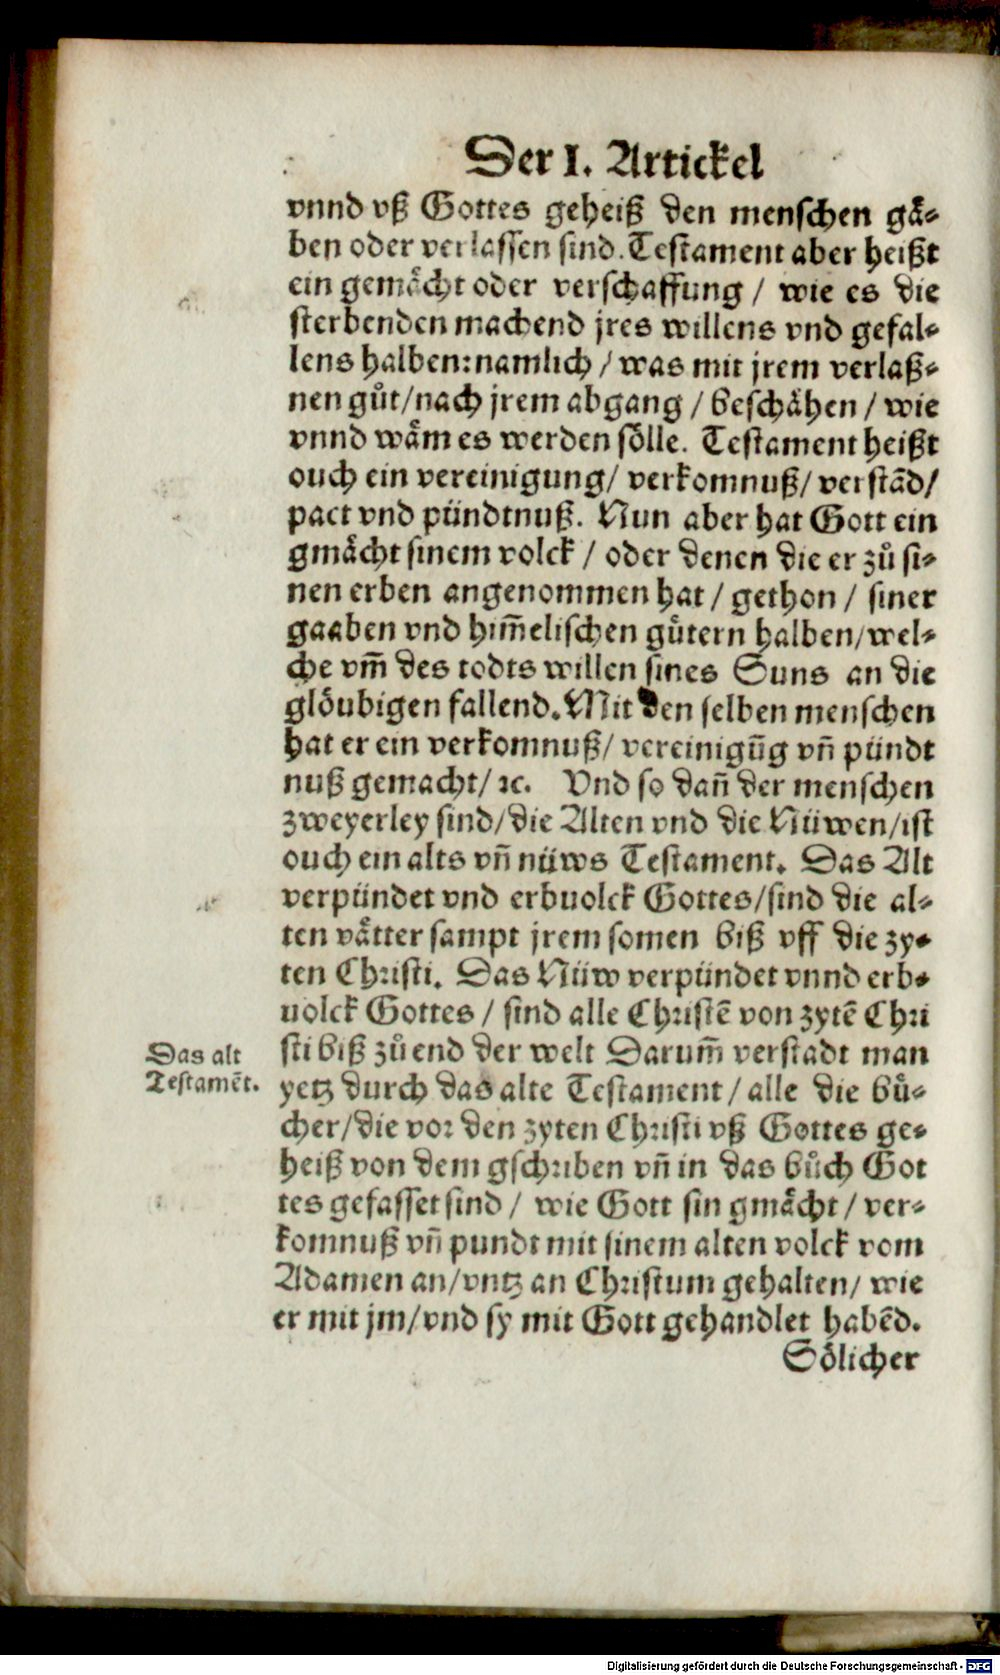 Der I. Artickel
vnnd vß Gottes geheiß den menschen gä⸗
ben oder verlassen sind. Testament aber heißt
ein gemächt oder verschaffung / wie es die
sterbenden machend jres willens vnd gefal⸗
lens halben: namlich / was mit jrem verlaß⸗
nen gůt / nach jrem abgang / beschähen / wie
vnnd wäm es werden sölle. Testament heißt
ouch ein vereinigung / verkomnuß / verstãd /
pact vnd pündtnuß. Nun aber hat Gott ein
gmächt sinem volck / oder denen die er zů si⸗
nen erben angenommen hat / gethon / siner
gaaben vnd him̃elischen gütern halben / wel⸗
che vm̃ des todts willen sines Suns an die
glöubigen fallend. Mit den selben menschen
hat er ein verkomnuß / vereinigũg vñ pündt
nuß gemacht / ꝛc. Vnd so dañ der menschen
zweyerley sind / die Alten vnd die Nüwen / ist
ouch ein alts vñ nüws Testament. Das Alt
verpündet vnd erbuolck Gottes / sind die al⸗
ten vätter sampt jrem somen biß vff die zy⸗
ten Christi. Das Nüw verpündet vnnd erb⸗
uolck Gottes / sind alle Christẽ von zytẽ Chri
sti biß zů end der welt Darum̃ verstadt man
yetz durch das alte Testament / alle die bü⸗
cher / die vor den zyten Christi vß Gottes ge⸗
heiß von dem gschriben vñ in das bůch Got
tes gefasset sind / wie Gott sin gmächt / ver⸗
komnuß vñ pundt mit sinem alten volck vom
Adamen an / vntz an Christum gehalten / wie
er mit jm / vnd sy mit Gott gehandlet habẽd.
Sölicher
Das alt
Testamẽt.
Digitalisierung gefördert durch die Deutsche Forschungsgemeinschaft - DFG